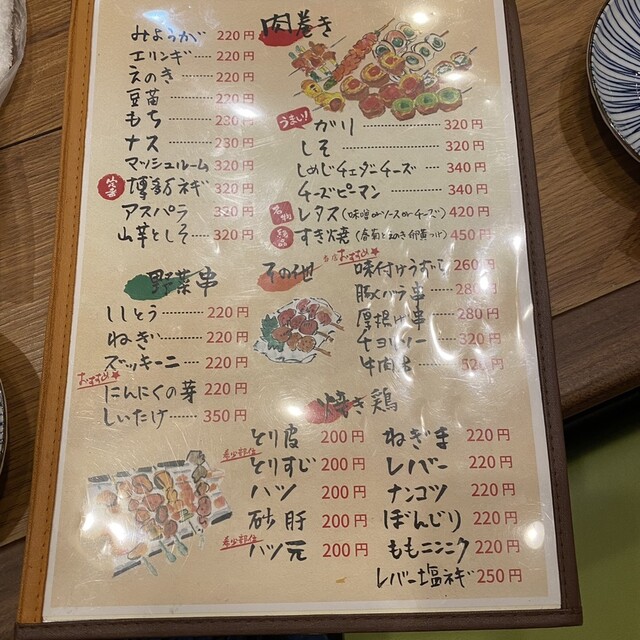 肉巻き
みょうが 220円
エリンギ 220円
えのき 220円
豆苗 220円
もち 230円
ナス 230円
マッシュルーム 320円
定番 博多ネギ 320円
アスパラ 320円
山芋としそ 320円
うまい! ガリ 320円
しそ 320円
しめじチェダーチーズ 340円
チーズピーマン 340円
名物 レタス(味噌orソースorチーズ) 420円
すき焼(春菊とえのき卵黄つけ) 450円
野菜串
ししとう 220円
ねぎ 220円
ズッキーニ 220円
おすすめ★
にんにくの芽 220円
しいたけ 350円
その他
当店おすすめ★
味付けうずら 260円
豚バラ串 280円
厚揚げ串 280円
チョリソー 320円
牛肉串 520円
焼き鳥
とり皮 200円
希少部位 とりすじ 200円
ハツ 200円
砂肝 200円
希少部位 ハツ元 200円
ねぎま 220円
レバー 220円
ナンコツ 220円
ぼんじり 220円
ももニンニク 220円
レバー塩ネギ 250円